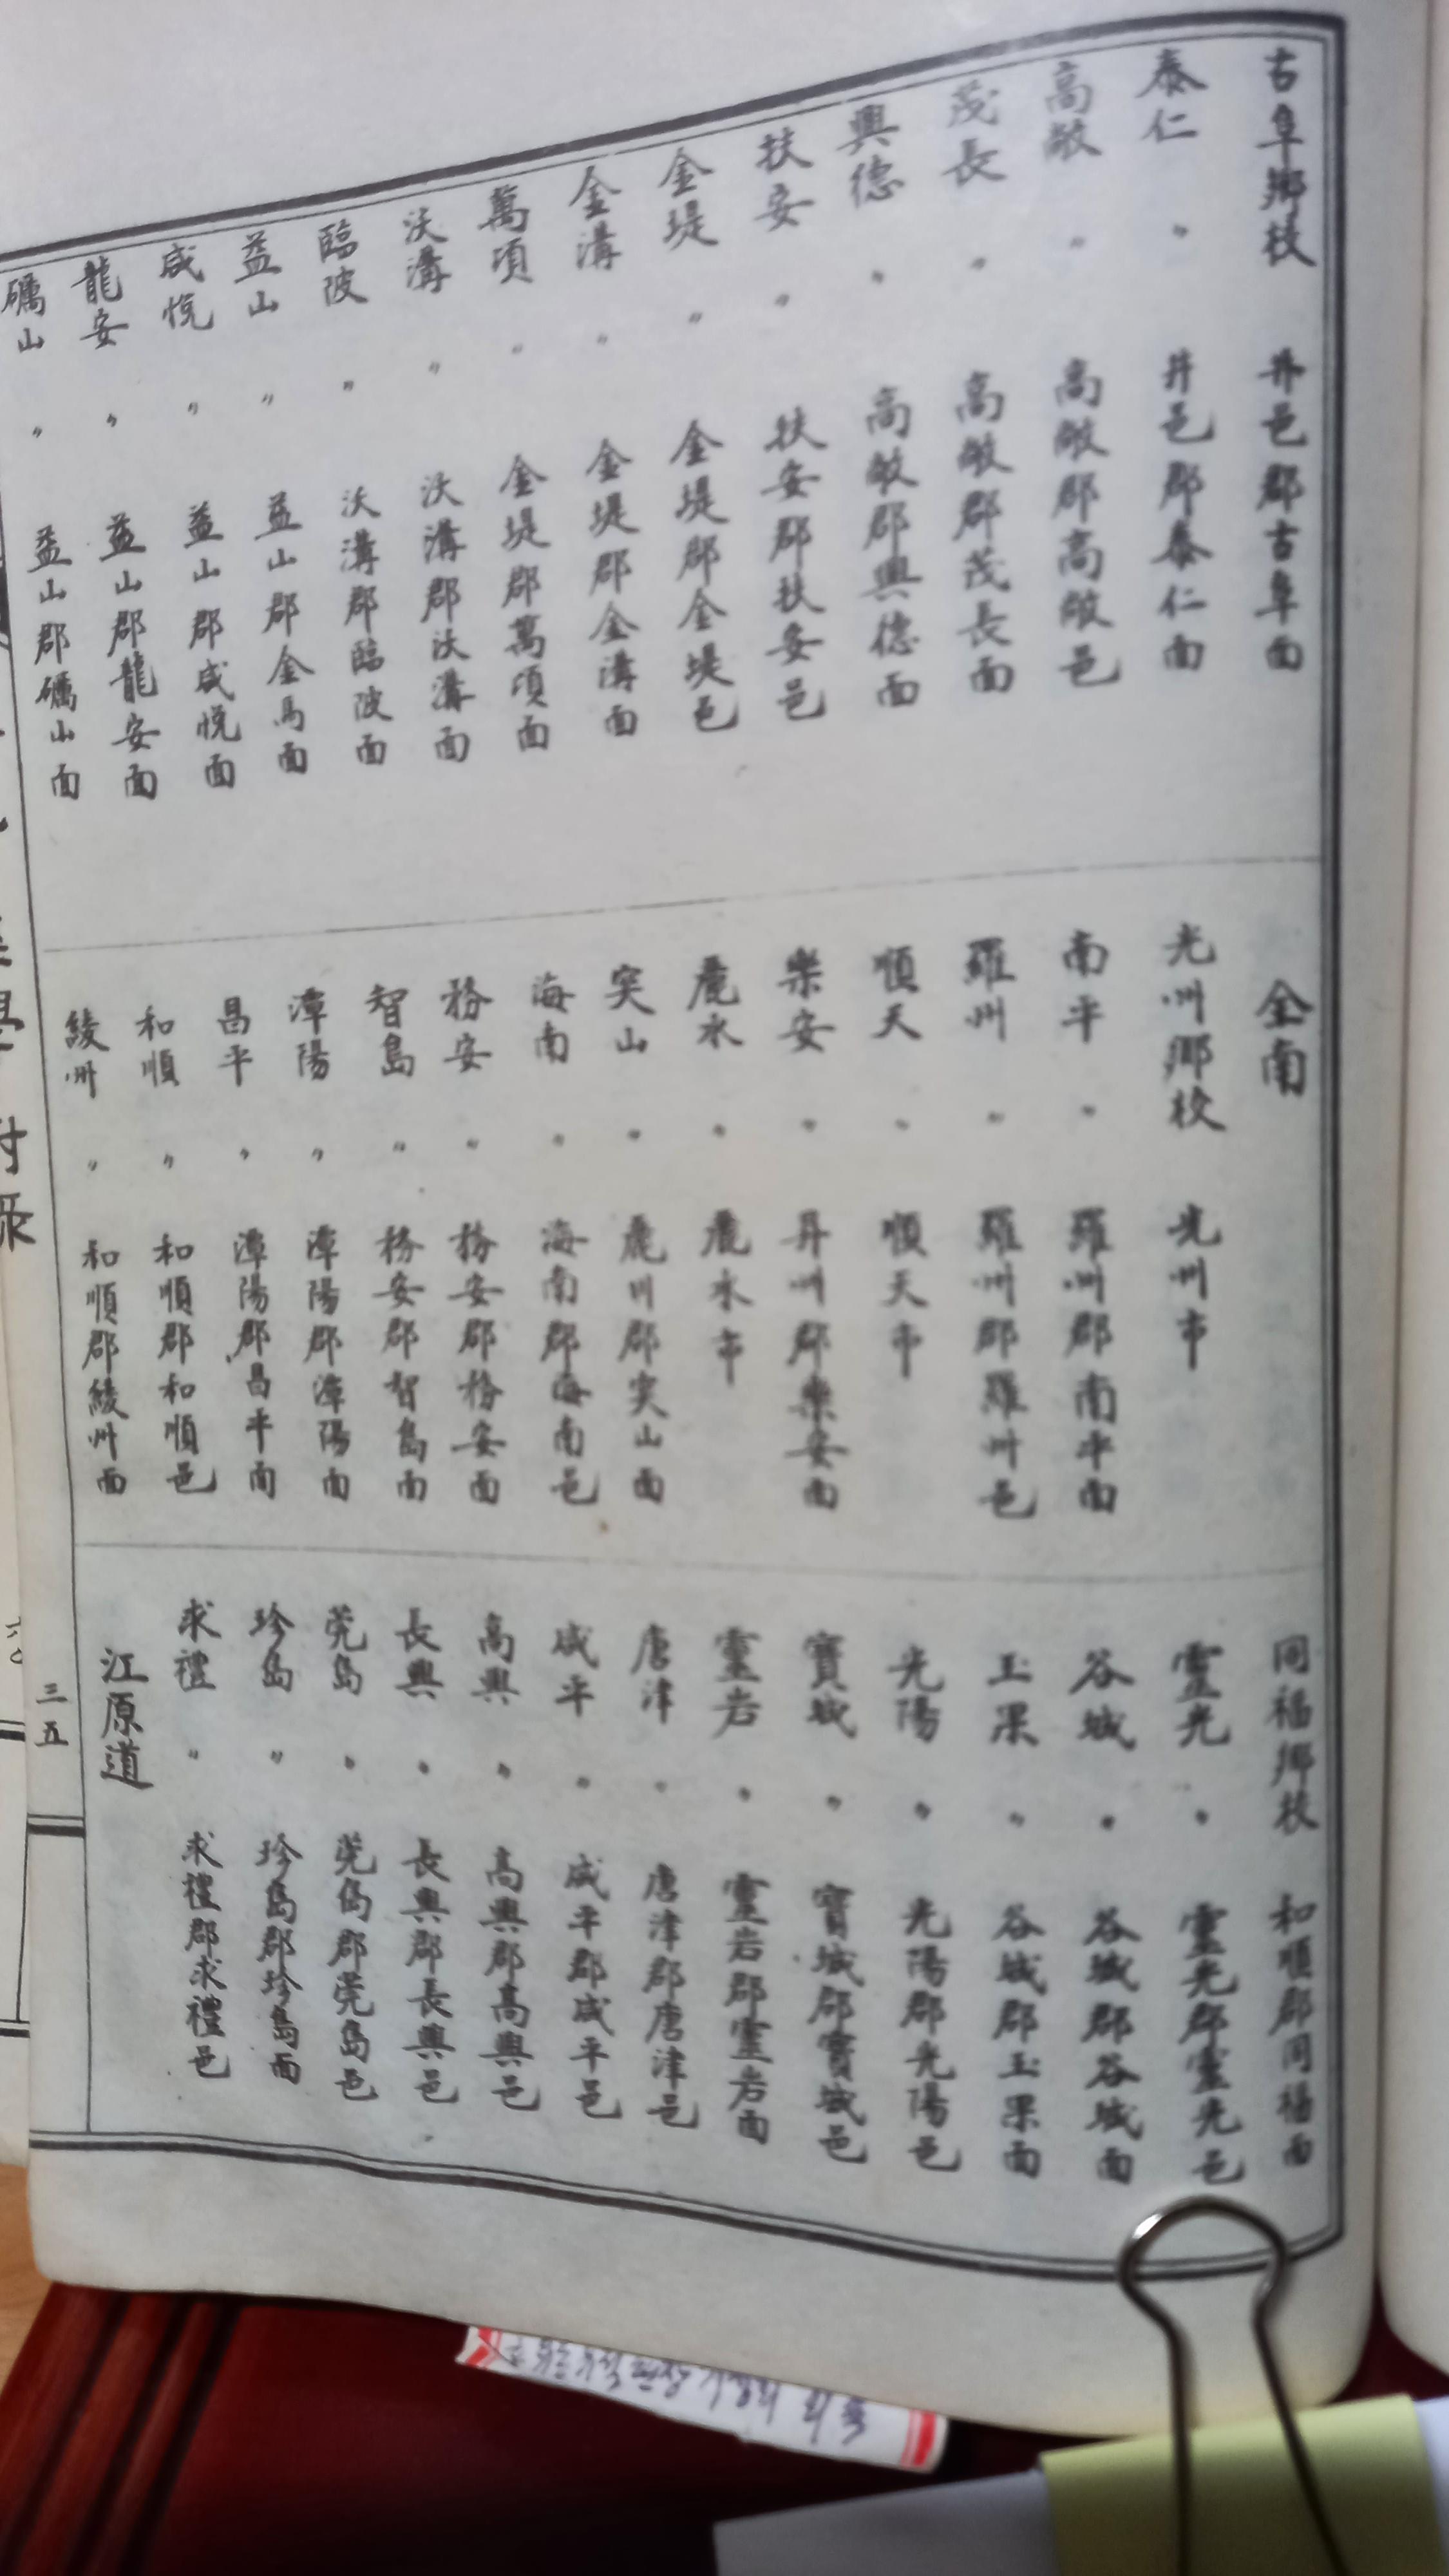 古阜鄕校 井邑郡古阜面
泰仁 〃 井邑郡泰仁面
高敞 〃 高敞郡高敞邑
茂長 〃 高敞郡茂長面
興德 〃 高敞郡興德面
扶安 〃 扶安郡扶安邑
金堤 〃 金堤郡金堤邑
金溝 〃 金堤郡金溝面
萬頃 〃 金堤郡萬頃面
沃溝 〃 沃溝郡沃溝面
臨陂 〃 沃溝郡臨陂面
益山 〃 益山郡金馬面
咸悅 〃 益山郡咸悅面
龍安 〃 益山郡龍安面
礪山 〃 益山郡礪山面
全南
光州鄕校 光州市
南平 〃 羅州郡南平面
羅州 〃 羅州郡羅州邑
順天 〃 順天市
樂安 〃 昇州郡樂安面
麗水 〃 麗水市
突山 〃 麗川郡突山面
海南 〃 海南郡海南邑
務安 〃 務安郡務安面
智島 〃 務安郡智島面
潭陽 〃 潭陽郡潭陽面
昌平 〃 潭陽郡昌平面
和順 〃 和順郡和順邑
綾州 〃 和順郡綾州面
同福鄕校 和順郡同福面
靈光 〃 靈光郡靈光邑
谷城 〃 谷城郡谷城面
玉果 〃 谷城郡玉果面
光陽 〃 光陽郡光陽邑
寶城 〃 寶城郡寶城邑
靈岩 〃 靈岩郡靈岩面
唐津 〃 唐津郡唐津邑
咸平 〃 咸平郡咸平邑
高興 〃 高興郡高興邑
長興 〃 長興郡長興邑
莞島 〃 莞島郡莞島邑
珍島 〃 珍島郡珍島面
求禮 〃 求禮郡求禮邑
江原道
三五